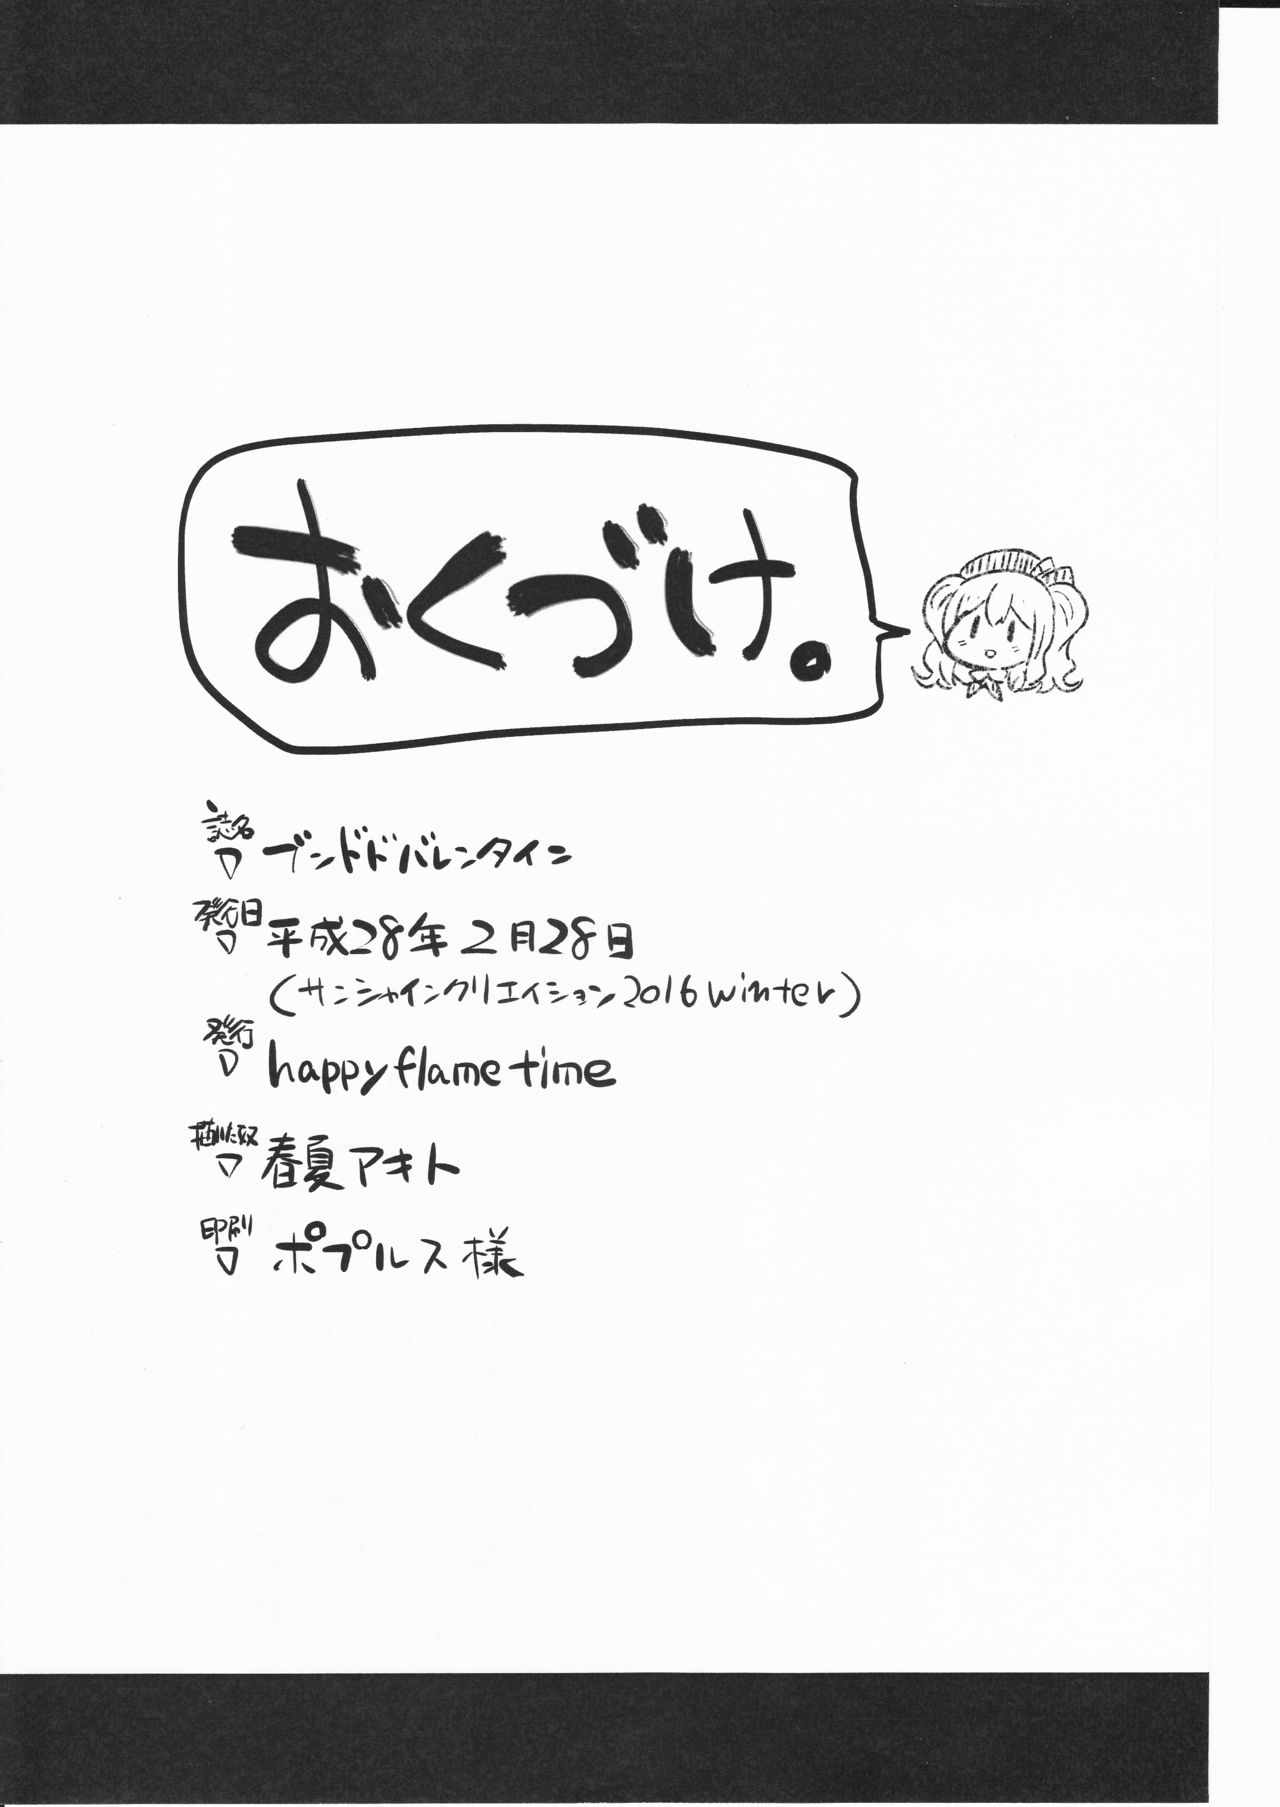 おくづけ。
誌名
ブンドドバレンタイン
発行日
平成28年2月28日
(サンシャインクリエイション2016winter)
発行
happyflametime
描いた奴
春夏アキト
印刷
ポプルス様